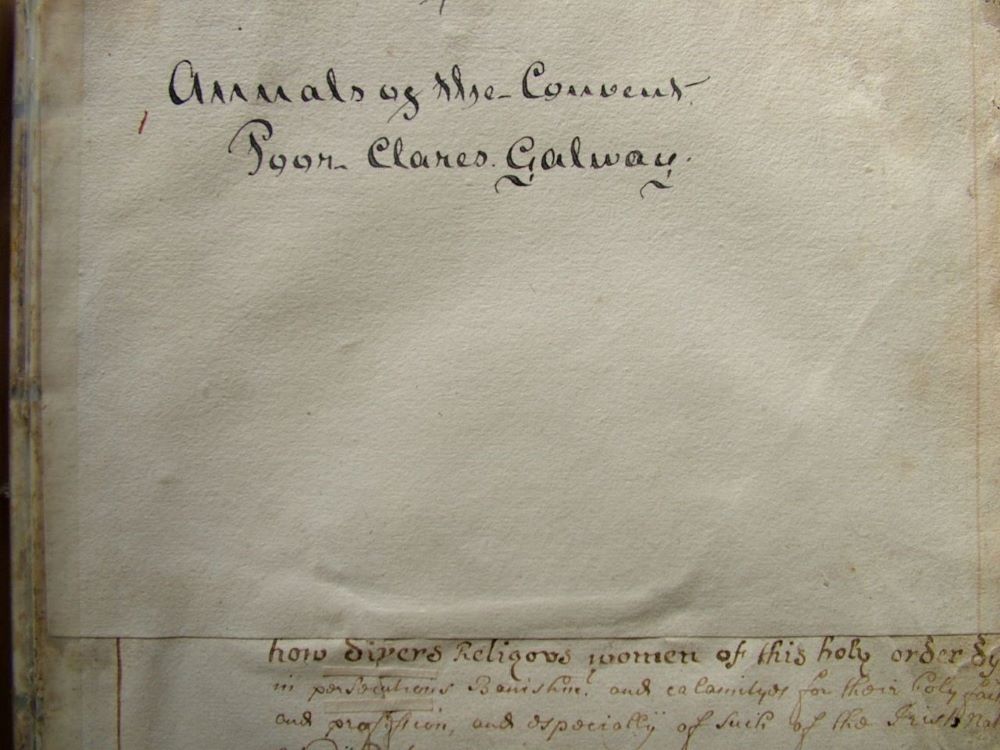 Annals of the Convent.
Poor Clares. Galway.
how divers Religovs women of this holy order dy
in persecutions Banishm: and calamityes for their holy fai
and profession, and especially of such of the Irish Nat